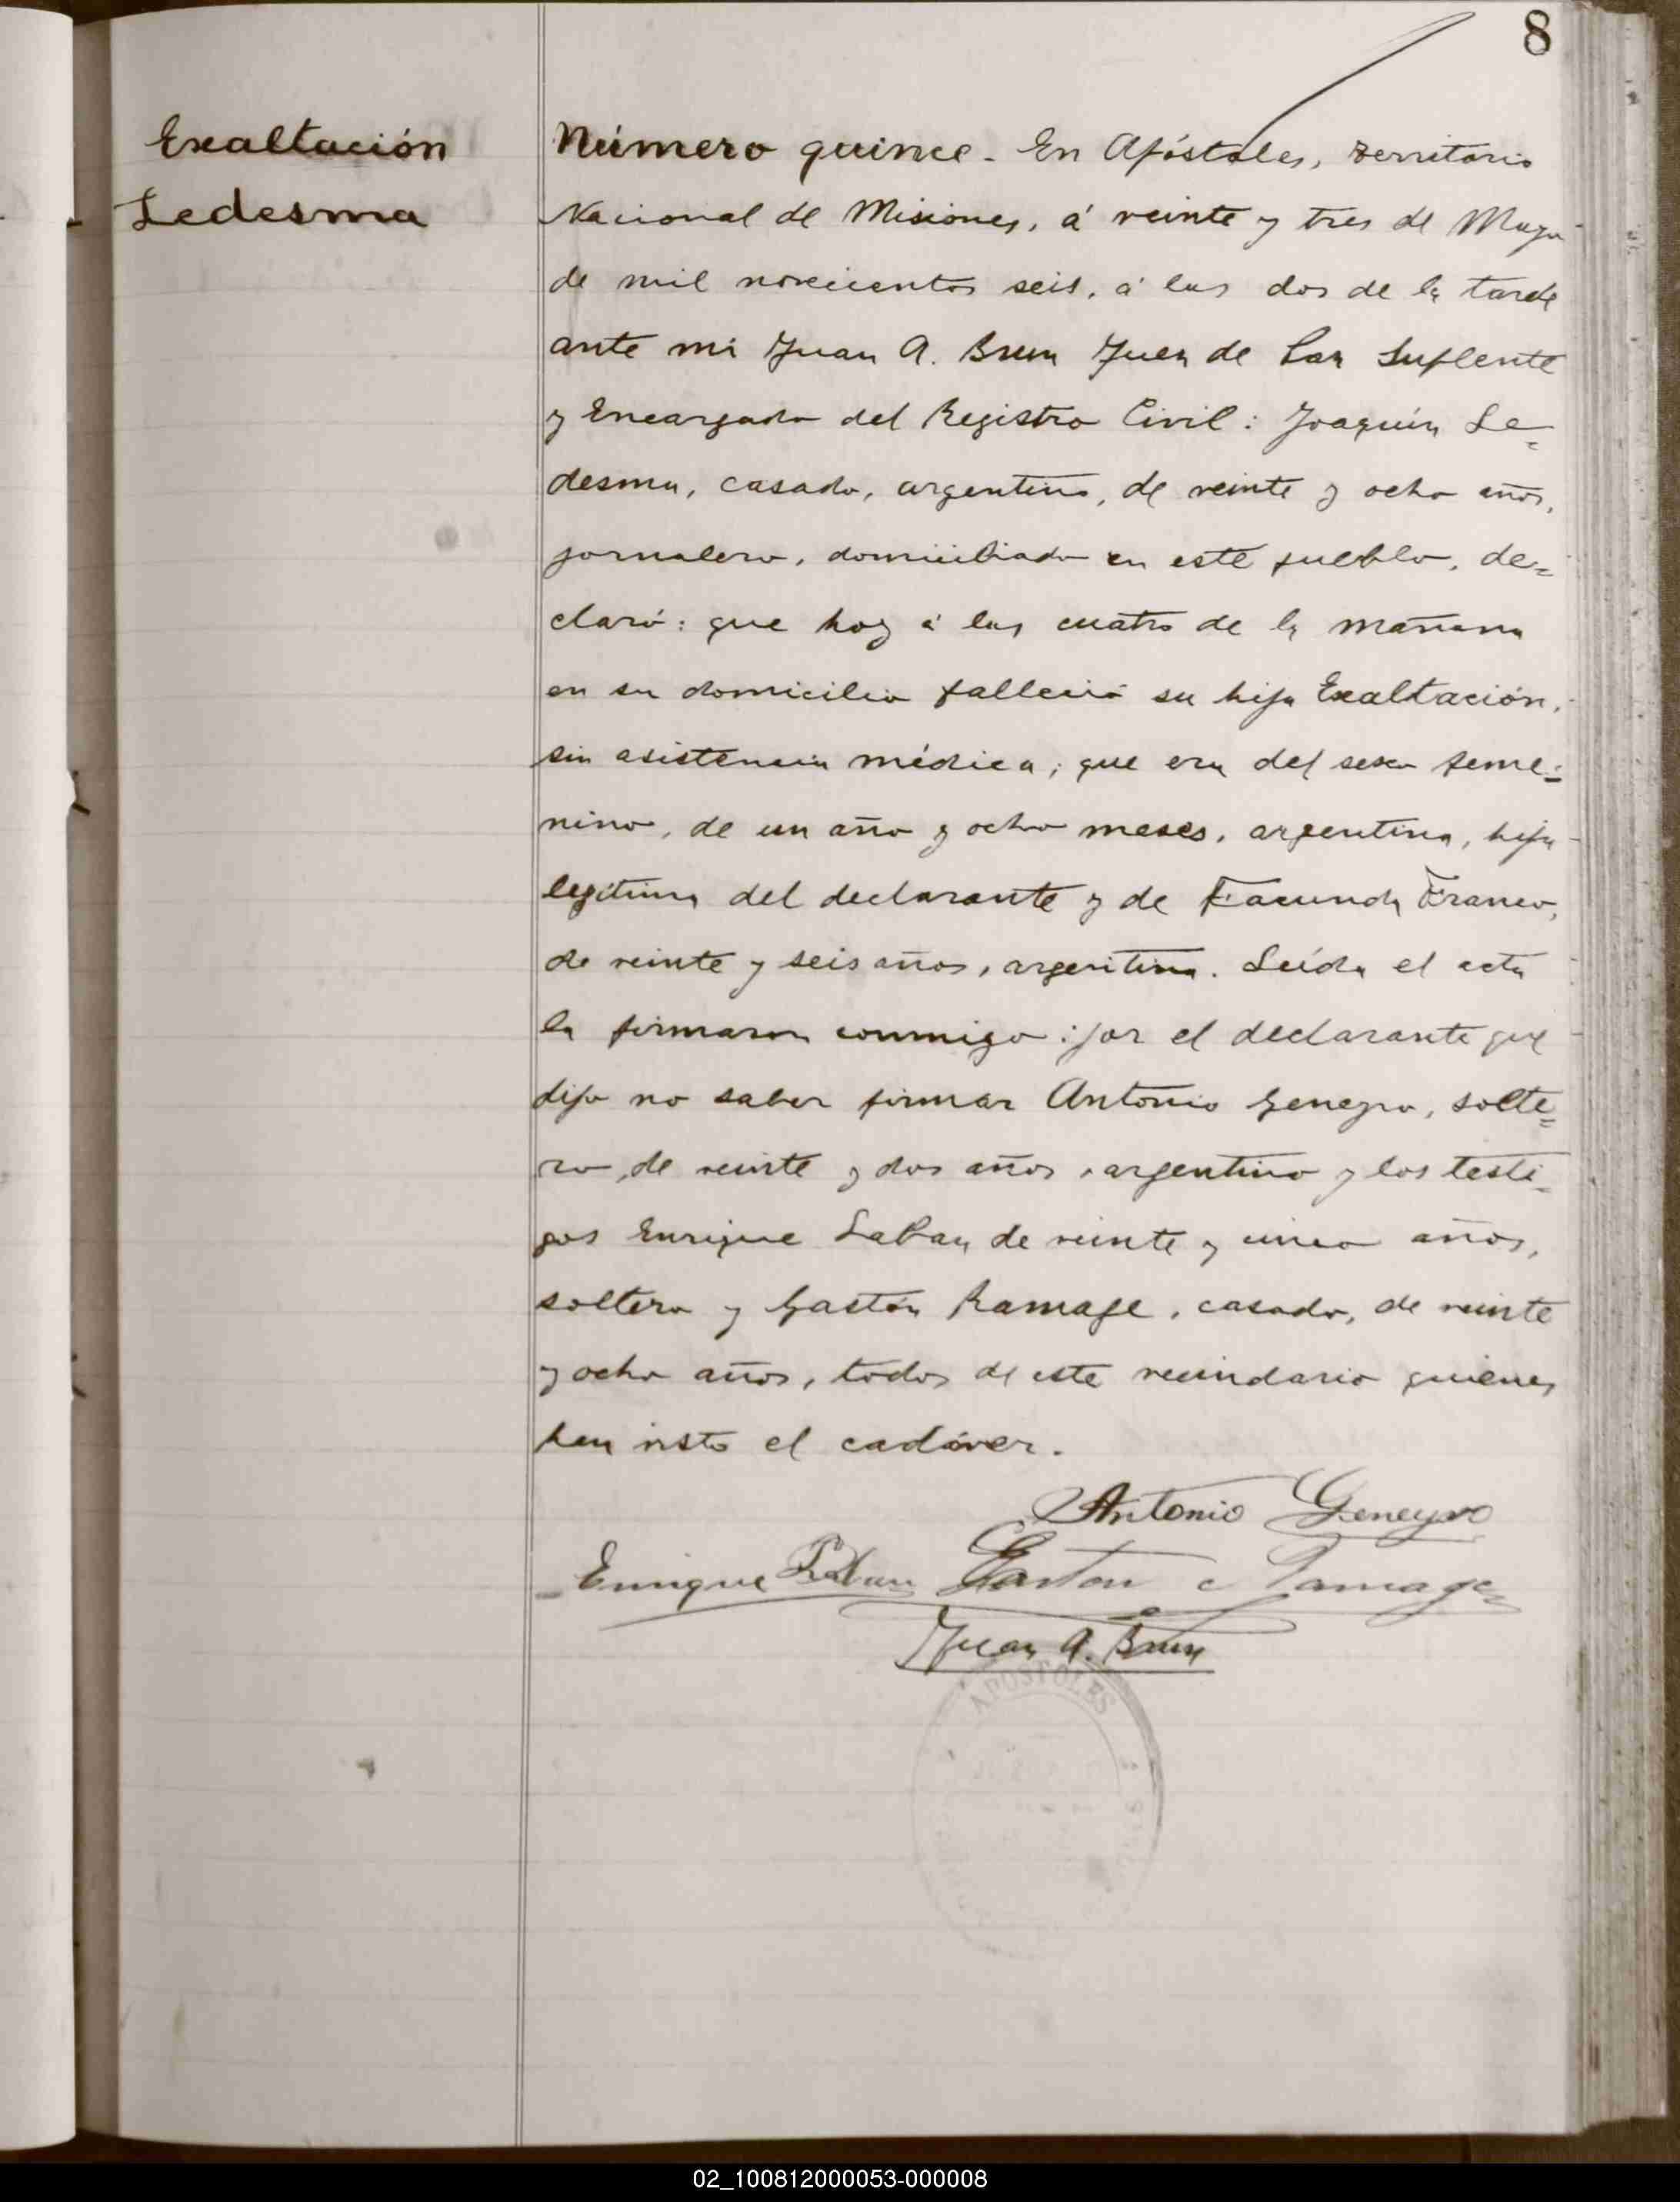 8
Exaltación
Ledesma
Número quince. En Apóstoles, territorio
Nacional de Misiones, á veinte y tres de Mayo
de mil novecientos seis, á las dos de la tarde
ante mi Juan A. Brun Juez de Paz Suplente
y Encargado del Registro Civil: Joaquín Le=
desma, casado, argentino, de veinte y ocho años,
jornalero, domiciliado en este pueblo, de=
claró: que hoy á las cuatro de la mañana
en su domicilio falleció su hija Exaltación,
sin asistencia médica; que era del sexo feme=
nino, de un año y ocho meses, argentina, hija
legítima del declarante y de Facunda Franco,
de veinte y seis años, argentina. Leída el acta
la firmaron conmigo: por el declarante que
dijo no saber firmar Antonio Geneyro, solte=
ro, de veinte y dos años, argentino y los testi=
gos Enrique de veinte y cinco años,
soltero y Gastón Ramage, casado, de veinte
y ocho años, todos de este vecindario quienes
han visto el cadáver.
Antonio Geneyro
Enrique Gaston Ramage
Juan A. Brun
APOSTOLES
02_100812000053-000008